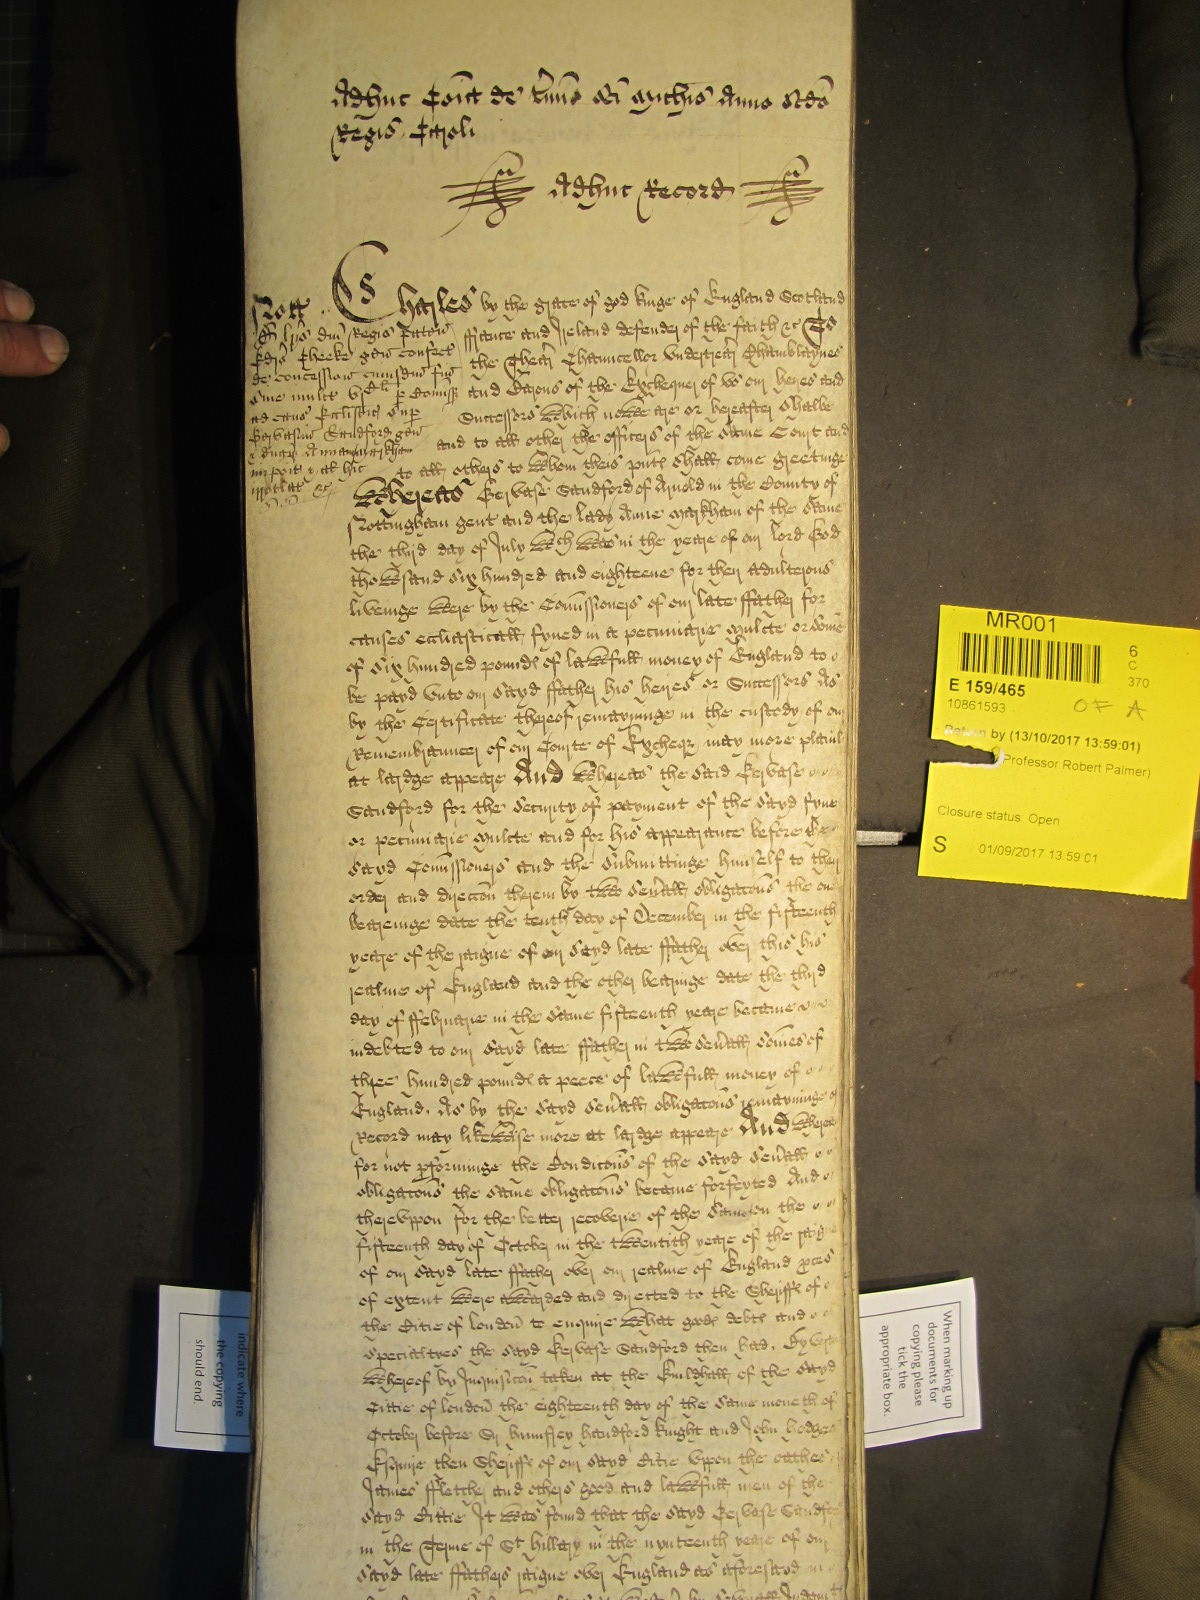 Adhuc Coia de Termio Sci Michis Anno Scdo
Regis Caroli
Adhuc Record
Nott
Charles by the grace of god kinge of England Scotland
ffrance and Ireland defender of the faith &c To
the Thear Chauncellor undertrear Chamblaynes
and Barons of the Exchequer of us our heires and
Successors which nowe are or hereafter shalbe
and to all other the officers of the same Court and
to all others to whom theis pntes shall come greetinge
Whereas Gervase Sandford of Arnold in the County of
Nottingham gent and the lady Anne Markham of the same
the third day of July wch was in the yeare of our Lord God
thowsand six hundred and eighteene for their adulterous
liveinge were by the Comissioners of our late ffather for
causes ecclīasticall fyned in a pecuniarie mulcte or some
of six hundred pounds of lawfull money of England to
be payd unto our sayd ffather his heires or Successors As
by the Certificate thereof remayninge in the custody of our
Remembrancer of our Courte of Exchequer may more plainl
at lardge appeare And whereas the said Gervase
Sandford for the security of payment of the sayd fyne
or pecuniarie mulcte and for his appearance before the
sayd Comissioners and the submittinge himself to their
order and direccon therein by two severall obligacons the one
beareinge date the tenth day of December in the fifteenth
yeare of the raigne of our sayd late ffather over this his
realme of England and the other bearinge date the third
day of ffebruarie in the same fifteenth yeare became
indebted to our sayd late ffather in two severall somes of
three hundred pounds a peece of lawfull money of
England. As by the sayd severall obligacons remayninge of
Record may likewise more at lardge appeare And whereas
for not pforminge the Condicons of the sayd severall
obligacons the same obligacons became forfeyted And
thereuppon for the better recoverie of the same on the
fifteenth day of October in the twentith yeare of the raigne
of our sayd late ffather over our realme of England pces
of extent were awarded and directed to the Sheriffs of
the Cittie of London to enquire what goods debts and
specialtyes the sayd Gervase Sandford then had. By
whereof by Inquisicon taken at the Guildhall of the sayd
Cittie of London the eighteenth day of the same moneth of
October before Sr humfrey handford knight and John hodges
Esquire then Sheriffs of our sayd Cittie uppon the oathes
James ffletcher and others good and lawfull men of the
sayd Cittie It was found that the sayd Gervase Sandford
in the Terme of St hillary in the nynteenth yeare of our
sayd late ffathers raigne over England as aforesaid in
MR001
6
C
370
E 159/465
10861593
OF A
Return by (13/10/2017 13:59:01)
(Professor Robert Palmer)
Closure status: Open
S 01/09/2017 13:59:01
indicate where
the copying
should end.
When marking up
documents for
copying please
tick the
appropriate box.